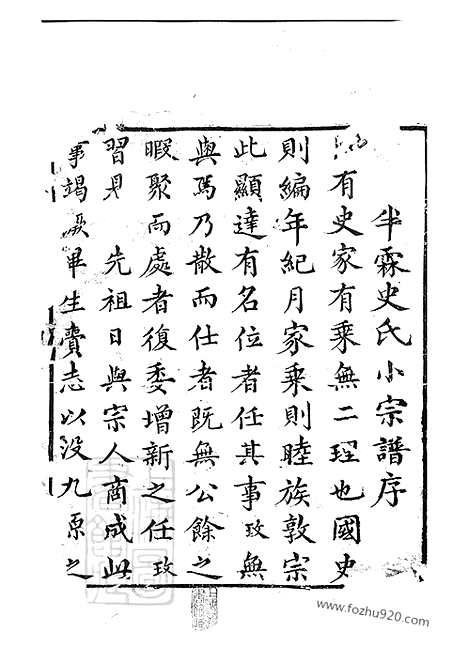 半霖史氏小宗譜序
有史家有乘無二理也國史
則編年紀月家乘則睦族敦宗
此顯達有名位者任其事攷無
與焉乃散而仕者既無公餘之
暇聚而處者復委增新之任攷
習見 先祖日與宗人商成此
事竭蹶畢生賫志以没九原之
www.fozhu920.com